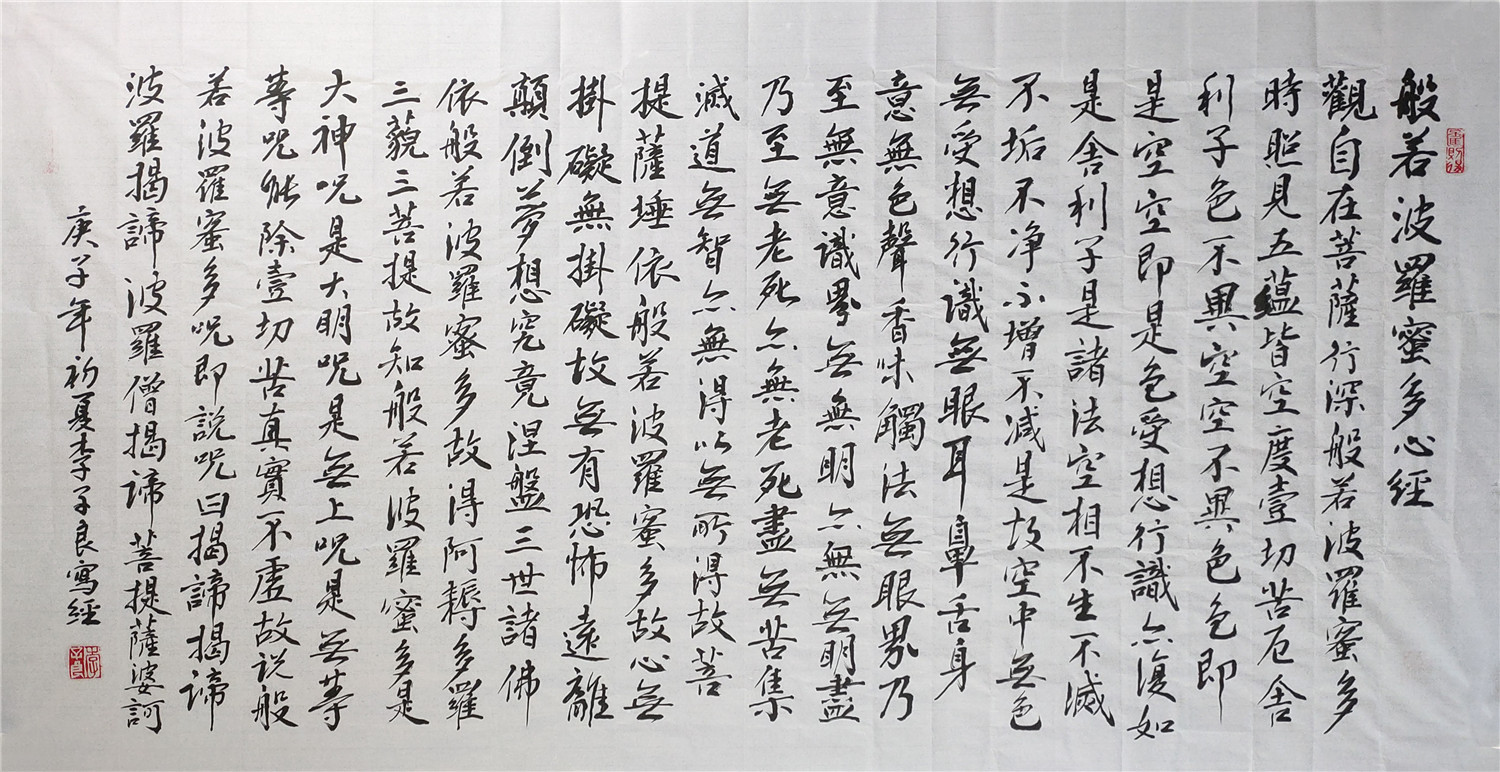 般若波羅蜜多心經
觀自在菩薩行深般若波羅蜜多
時照見五蘊皆空度壹切苦厄舍
利子色不異空空不異色色即
是空空即是色受想行識亦復如
是舍利子是諸法空相不生不滅
不垢不净不增不減是故空中無色
無受想行識無眼耳鼻舌身
意無色聲香味觸法無眼界乃
至無意識界無無明亦無無明盡
乃至無老死亦無老死盡無苦集
滅道無智亦無得以無所得故菩
提薩埵依般若波羅蜜多故心無
掛礙無掛礙故無有恐怖遠離
顛倒夢想究竟涅盤三世諸佛
依般若波羅蜜多故得阿耨多羅
三藐三菩提故知般若波羅蜜多是
大神咒是大明咒是無上咒是無等
等咒能除壹切苦真實不虛故說般
若波羅蜜多咒即說咒曰揭諦揭諦
波羅揭諦波羅僧揭諦菩提薩婆訶
庚子年初夏李子良寫經
李子良